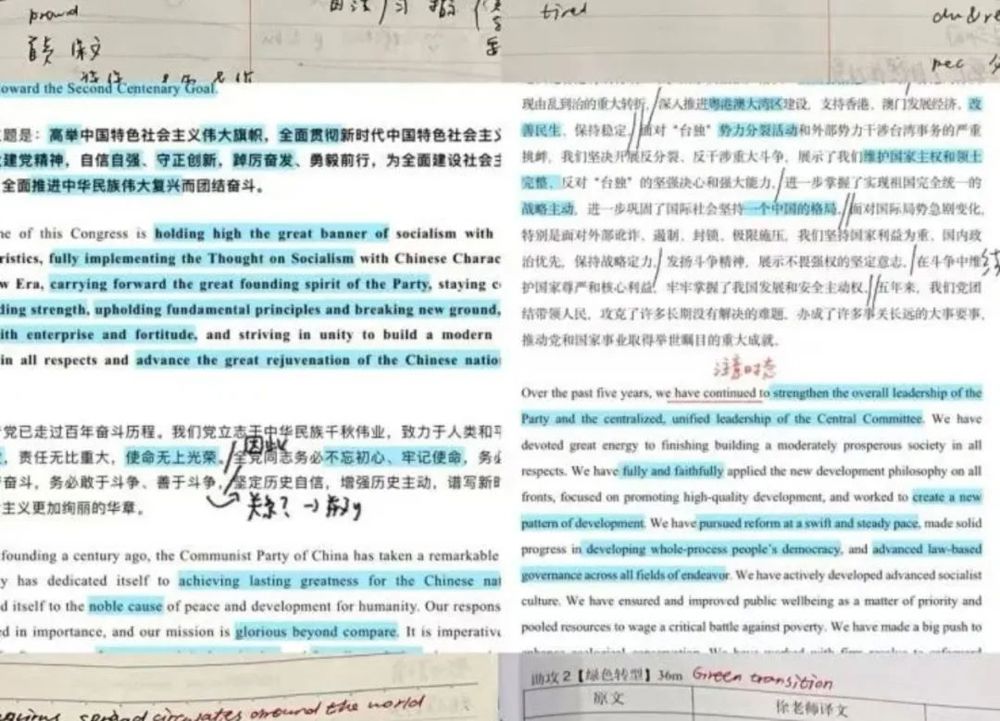 proud
tired
oward the Second Centenary Goal.
题是：高举中国特色社会主义伟大旗帜，全面贯彻新时代中国特色社会主义
建党精神，自信自强、守正创新，踔厉奋发、勇毅前行，为全面建设社会主
全面推进中华民族伟大复兴而团结奋斗。
me of this Congress is holding high the great banner of socialism with
ristics, fully implementing the Thought on Socialism with Chinese Charac
w Era, carrying forward the great founding spirit of the Party, staying c
ding strength, upholding fundamental principles and breaking new ground,
ith enterprise and fortitude, and striving in unity to build a modern
in all respects and advance the great rejuvenation of the Chinese natio
党已走过百年奋斗历程。我们党立志于中华民族千秋伟业，致力于人类和平
，责任无比重大，使命无上光荣。全党同志务必不忘初心、牢记使命，务必
因此
奋斗，务必敢于斗争、善于斗争，坚定历史自信，增强历史主动，谱写新时
主义更加绚丽的华章。
关系？→
founding a century ago, the Communist Party of China has taken a remarkable
y has dedicated itself to achieving lasting greatness for the Chinese nat
d itself to the noble cause of peace and development for humanity. Our respons
ed in importance, and our mission is glorious beyond compare. It is imperative
circulates around the world
现由乱到治的重大转折，深入推进粤港澳大湾区建设，支持香港、澳门发展经济、改
善民生、保持稳定。面对“台独”势力分裂活动和外部势力干涉台湾事务的严重
挑衅，我们坚决开展反分裂、反干涉重大斗争，展示了我们维护国家主权和领土
完整、反对“台独”的坚强决心和强大能力，进一步掌握了实现祖国完全统一的
战略主动，进一步巩固了国际社会坚持一个中国的格局。面对国际局势急剧变化，
特别是面对外部讹诈、遏制、封锁、极限施压，我们坚持国家利益为重、国内政
治优先，保持战略定力，发扬斗争精神，展示不畏强权的坚定意志，在斗争中维
护国家尊严和核心利益，牢牢掌握了我国发展和安全主动权。五年来，我们党团
结带领人民，攻克了许多长期没有解决的难题，办成了许多事关长远的大事要事，
推动党和国家事业取得举世瞩目的重大成就。
注意时态
Over the past five years, we have continued to strengthen the overall leadership of the
Party and the centralized, unified leadership of the Central Committee. We have
devoted great energy to finishing building a moderately prosperous society in all
respects. We have fully and faithfully applied the new development philosophy on all
fronts, focused on promoting high-quality development, and worked to create a new
pattern of development. We have pursued reform at a swift and steady pace, made solid
progress in developing whole-process people's democracy, and advanced law-based
governance across all fields of endeavor. We have actively developed advanced socialist
culture. We have ensured and improved public wellbeing as a matter of priority and
pooled resources to wage a critical battle against poverty. We have made a big push to
助攻2【绿色转型】36m Green transition
原文
徐老师译文